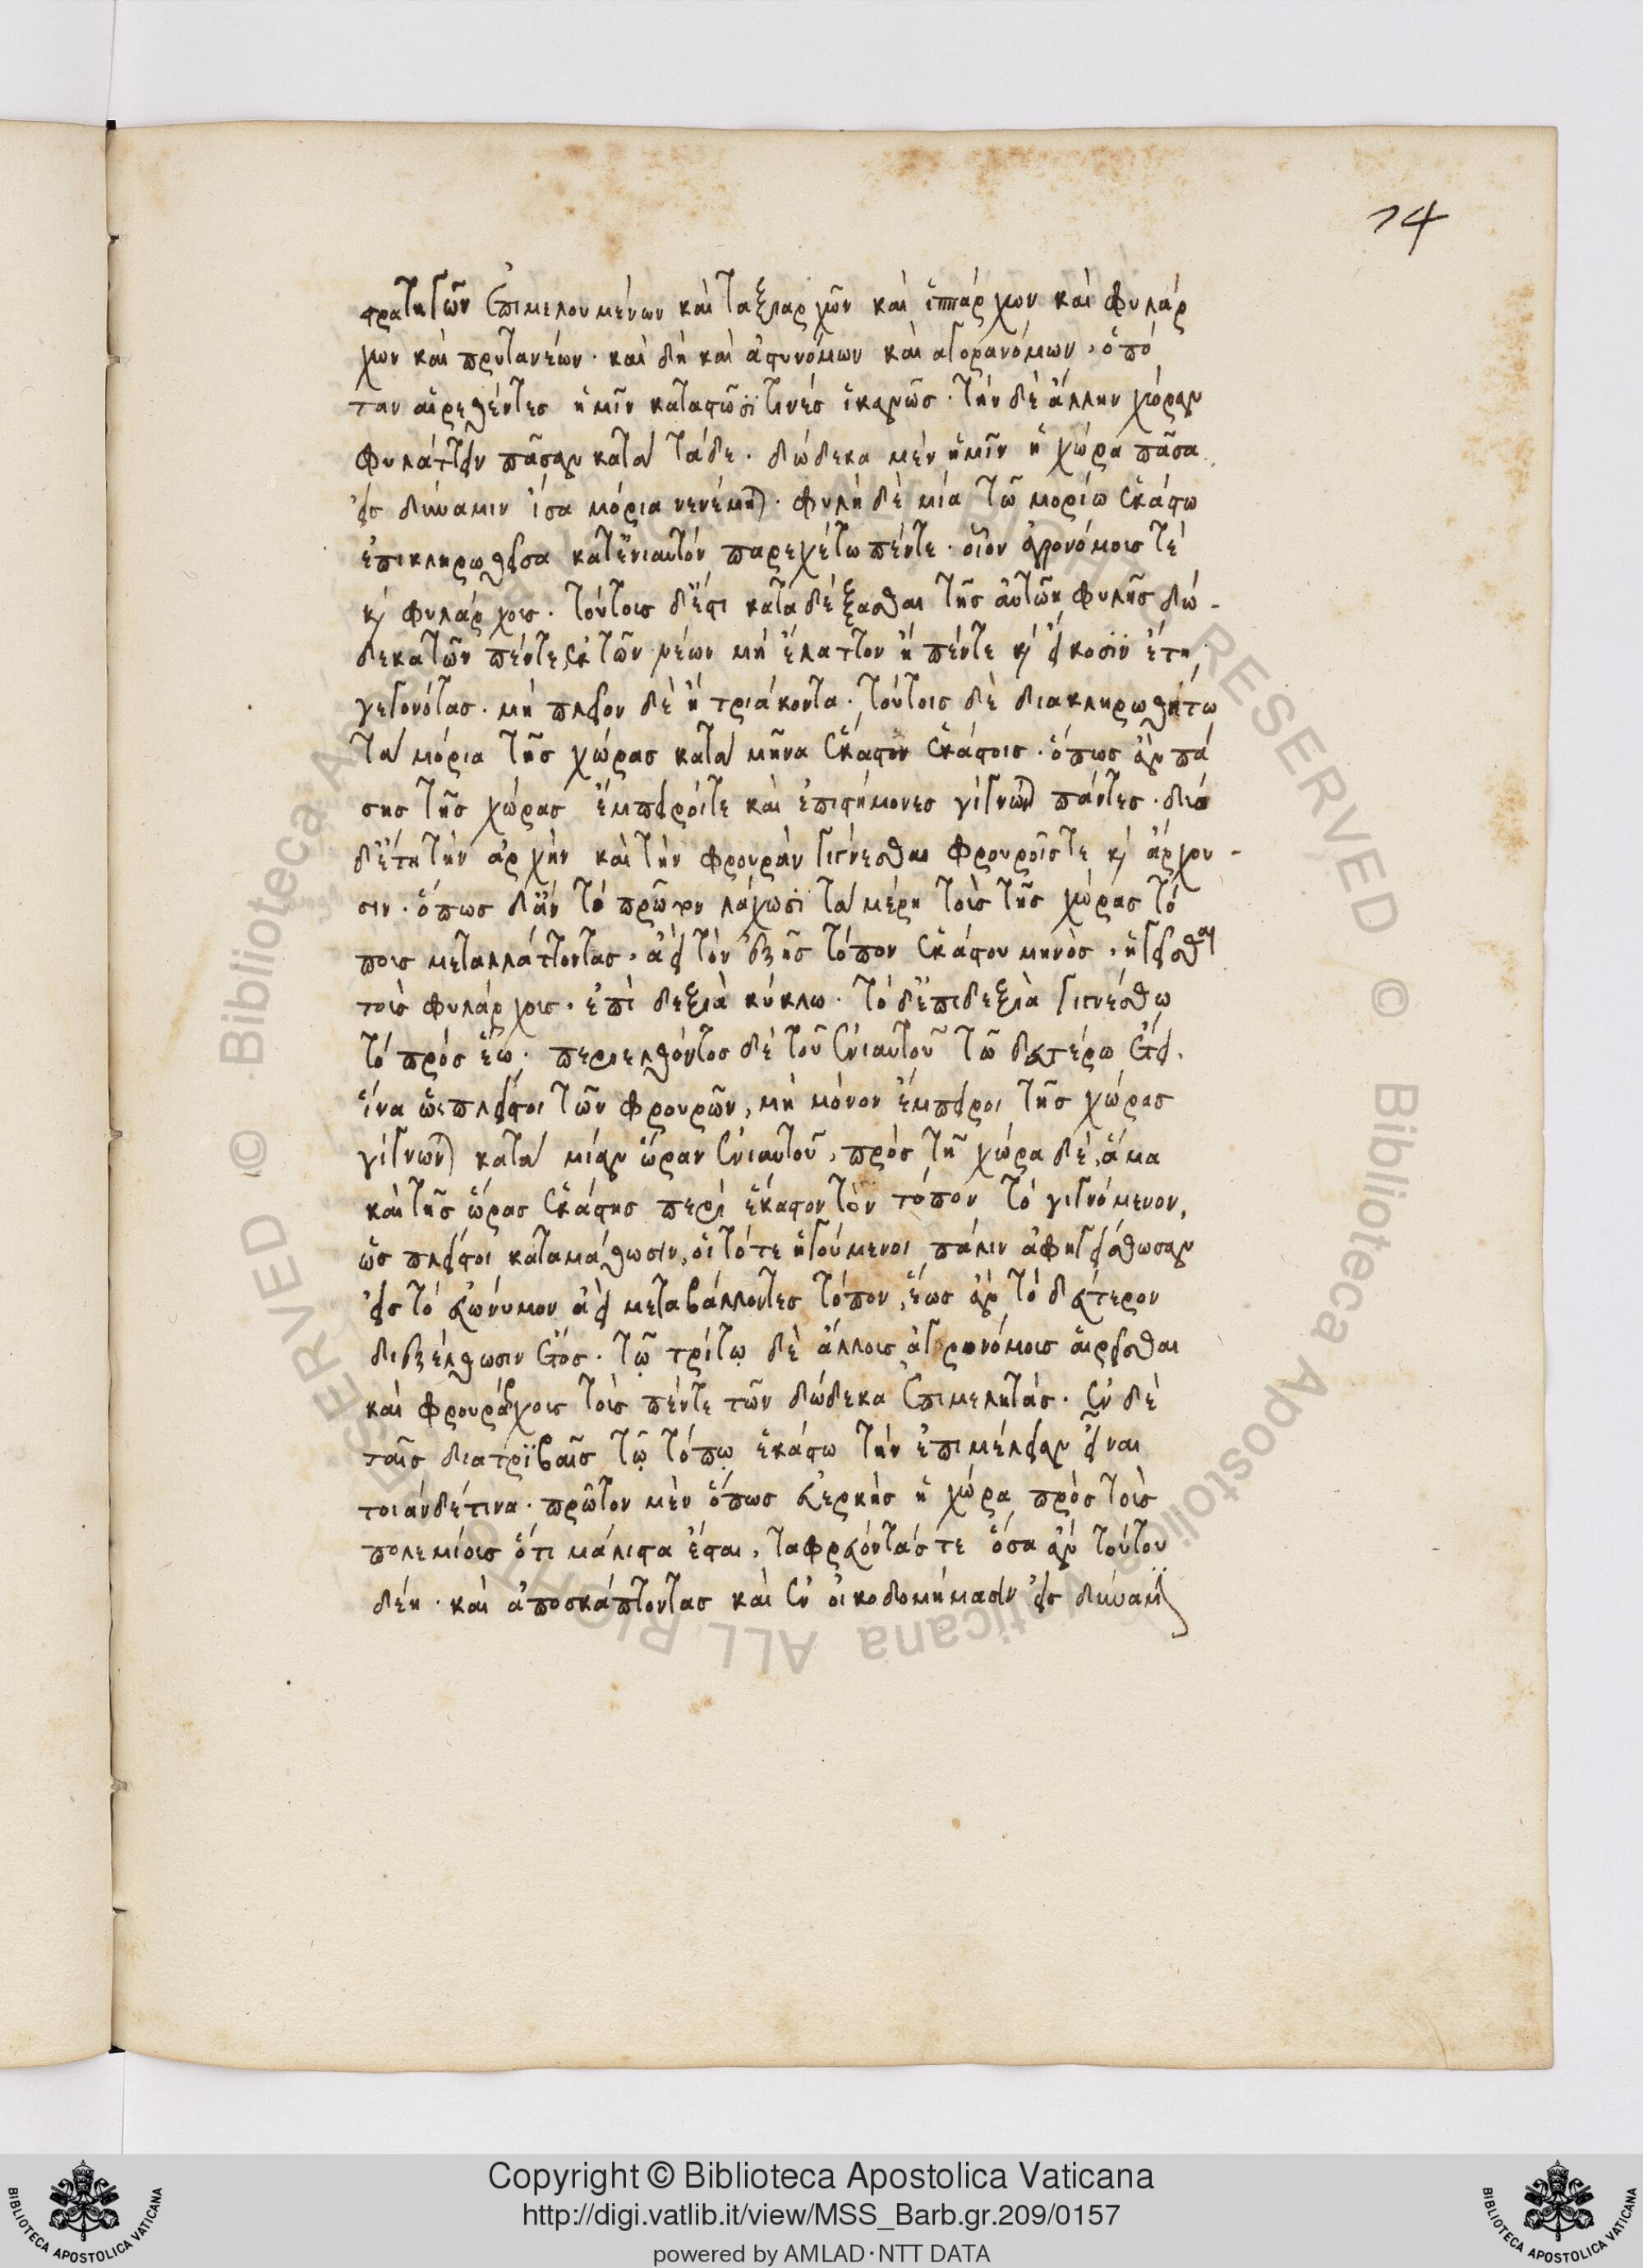 74
στρατηγῶν ἐπιμελουμένων καὶ ταξιαρχῶν καὶ ἱππάρχων καὶ φυλάρ
χων καὶ πρυτανέων· καὶ δὴ καὶ ἀστυνόμων καὶ ἀγορανόμων, ὁπό
ταν αἱρεθέντες ἡμῖν καταστῶσί τινές ἱκανῶς· τὴν δὲ ἄλλην χώραν
φυλάττειν πᾶσαν κατὰ τάδε· δώδεκα μὲν ἡμῖν ἡ χώρα πᾶσα
εἰς δύναμιν ἴσα μόρια νενέμηται· φυλὴ δὲ μία τῶ μορίω ἑκάστω
ἐπικληρωθεῖσα κατ' ἐνιαυτόν παρεχέτω πέντε· οἷον ἀγρονόμοις τέ
κ φυλάρχοις· τούτοις δ' ἔστι καταδέξασθαι τῆς αὑτῶν φυλῆς δώ-
δεκα τῶν πέντε ἐκ τῶν νέων μὴ ἔλαττον ἢ πέντε κ εἴκοσιν ἔτη
γεγονότας· μὴ πλεῖον δὲ ἢ τριάκοντα· τούτοις δὲ διακληρωθήτω
τὰ μόρια τῆς χώρας κατὰ μῆνα ἕκαστον ἑκάστοις· ὅπως ἂν πά
σης τῆς χώρας ἔμπειροί τε καὶ ἐπιστήμονες γίγνωνται πάντες· δύο
δ' ἔτη τὴν ἀρχὴν καὶ τὴν φρουρὰν γίγνεσθαι φρουροῖς τε κ ἄρχου-
σιν· ὅπως δ' ἂν τὸ πρῶτον λάχωσι τὰ μέρη τοὺς τῆς χώρας τό
πους μεταλλάττοντας, ἀεὶ τὸν ἑξῆς τόπον ἑκάστου μηνὸς, ἡγεῖσθαι
τοὺς φυλάρχους, ἐπὶ δεξιὰ κύκλω· τὸ δ' ἐπιδεξιὰ γιγνέσθω
τὸ πρὸς ἕω· περιελθόντος δὲ τοῦ ἐνιαυτοῦ τῶ δευτέρω ἔτει,
ἵνα ὡς πλεῖστοι τῶν φρουρῶν, μὴ μόνον ἔμπειροι τῆς χώρας
γίγνωνται κατὰ μίαν ὥραν ἐνιαυτοῦ, πρὸς τῆ χώρα δὲ, ἅμα
καὶ τῆς ὥρας ἑκάστης περὶ ἕκαστον τὸν τόπον τὸ γιγνόμενον,
ὡς πλεῖστοι καταμάθωσιν, οἱ τότε ἡγούμενοι πάλιν ἀφηγείσθωσαν
εἰς τὸ εὐώνυμον ἀεὶ μεταβάλλοντες τόπον, ἕως ἂν τὸ δεύτερον
διεξέλθωσιν ἔτος· τῷ τρίτῳ δὲ ἄλλους ἀγρονόμους αἱρεῖσθαι
καὶ φρουράρχους τοὺς πέντε τῶν δώδεκα ἐπιμελητάς· ἐν δὲ
ταῖς διατριβαῖς τῷ τόπῳ ἑκάστω τὴν ἐπιμέλειαν εἶναι
τοιάνδέ τινα· πρῶτον μὲν ὅπως εὐερκὴς ἡ χώρα πρὸς τοὺς
πολεμίους ὅτι μάλιστα ἔσται, ταφρεύοντάς τε ὅσα ἂν τούτου
δέη· καὶ ἀποσκάπτοντας καὶ ἐν οἰκοδομήμασιν εἰς δύναμιν
Copyright © Biblioteca Apostolica Vaticana
http://digi.vatlib.it/view/MSS_Barb.gr.209/0157
powered by AMLAD·NTT DATA